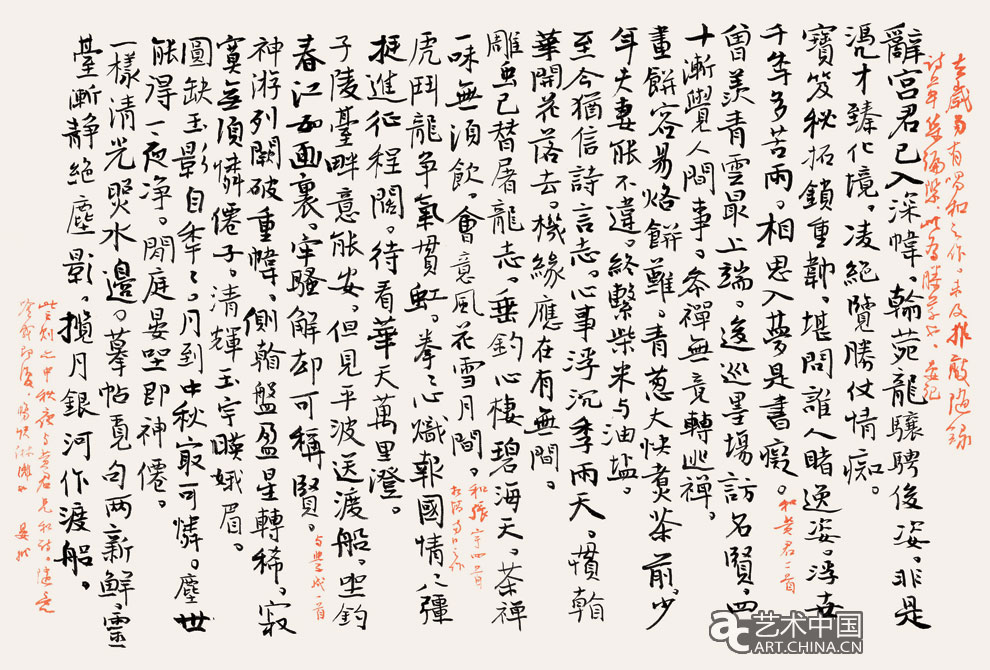 去歲多有唱和之作。未及推敲隨錄
辭宮君已入深幃。翰苑龍驤騁俊姿。非是
憑才臻化境。凌絕覽勝仗情痴。
寶笈秘拓鎖重幃。堪問誰人睹逸姿。浮去
千年多苦雨。相思入夢是書癡。
和黃君二首
曾羨青雲最上端。逡巡墨場訪名賢。四
十漸覺人間事。參禪無竟轉逃禪。
畫餅容易烙餅難。青蔥大快煮茶前。少
年夫妻能不違。終繫柴米与油盐。
至今猶信詩言志。心事浮沉季雨天。慣翰
華開花落去。機緣應在有無間。
雕虫已替屠龍志。垂釣心棲碧海天。茶禪
一味無須飲。會意風花雪月間。
和張宇四首
虎鬥龍爭氣貫虹。拳〻熾報國情〻彊
挺進征程闊。待看華天萬里澄。
子陵臺畔意能安。但見平波送渡船。坐釣
春江面裏。牢騷解却可稱賢。
与豊成一首
神游列闕破重幃。側翰盤盈星轉稀。寂
寞無須憐僊子。清輝玉宇暎娥眉。
圖缺玉影自年〻。月到中秋寂可憐。塵世
能得一夜净。閒庭晏坐即神僊。
一樣清光照水邊。摹帖覓句两新鮮。靈
臺漸静絕塵影。攬月銀河作渡船。
此則之中秋夜与黃君兄和詩。隨意
艺术中国
ART.CHINA.CN